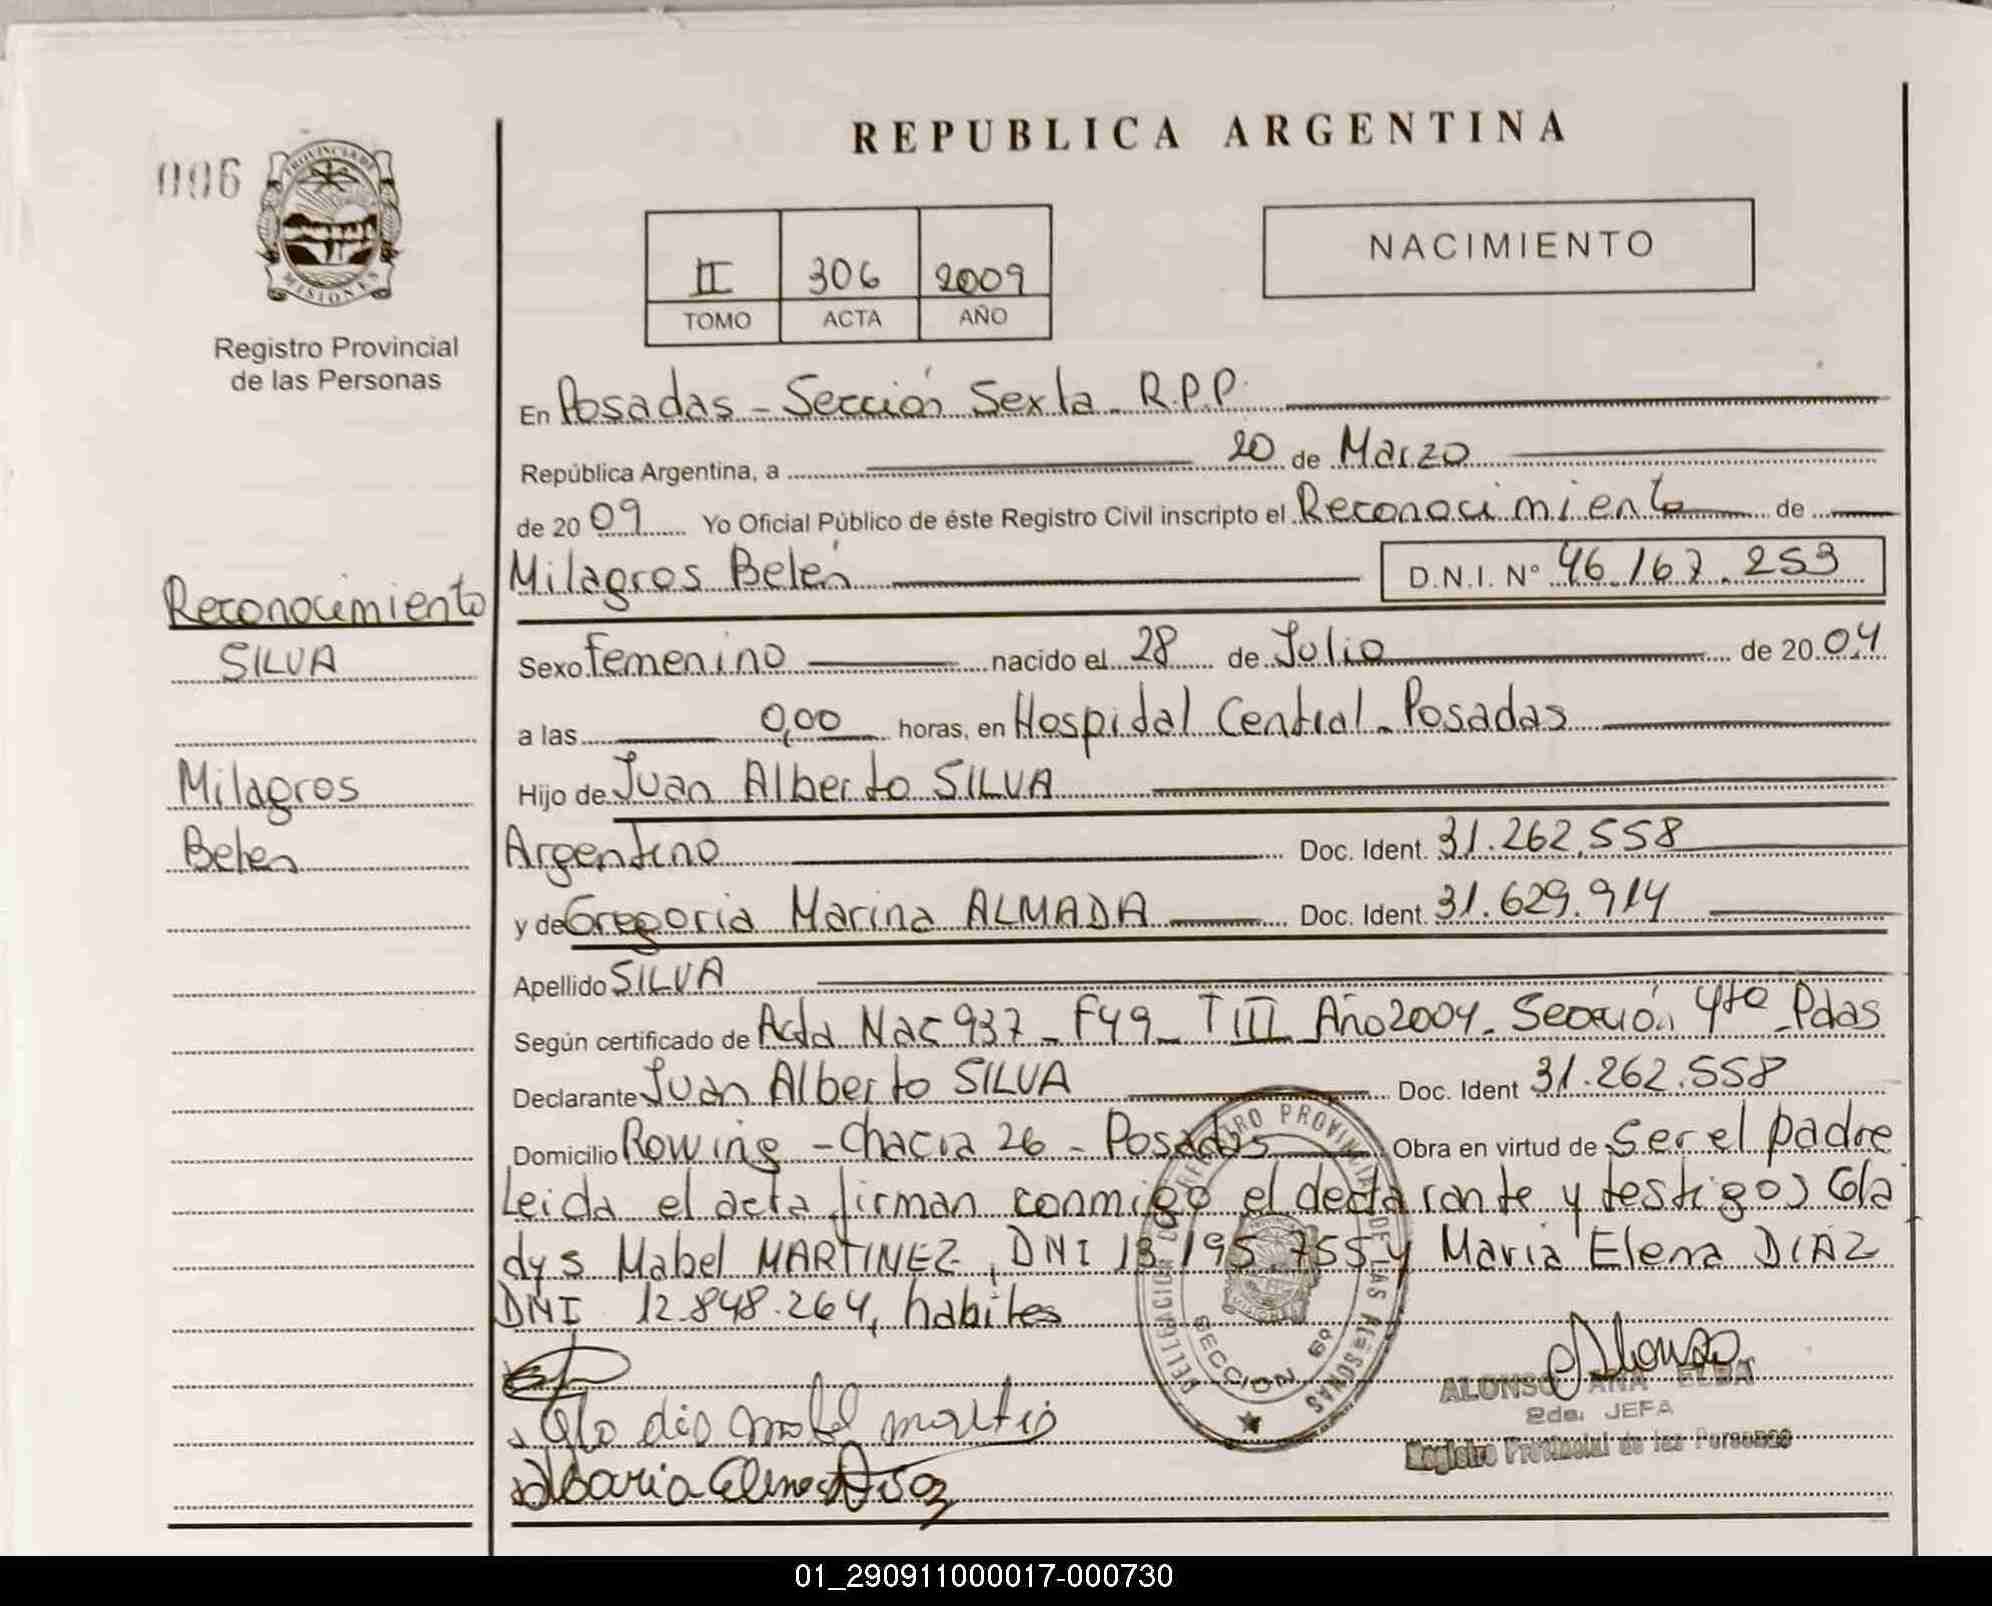 REPUBLICA ARGENTINA
006
PROVINCIA DE
MISIONES
Registro Provincial
de las Personas
II 306 2009
TOMO ACTA AÑO
NACIMIENTO
En Posadas - Sección Sexta R.P.P.
República Argentina, a 20 de Marzo
de 2009 Yo Oficial Público de éste Registro Civil inscripto el Reconocimiento de
Milagros Belén D.N.I. N° 46.167.253
Reconocimiento
SILVA
Milagros
Belen
Sexo Femenino nacido el 28 de Julio de 2004
a las 0,00 horas, en Hospidal Central - Posadas
Hijo de Juan Alberto SILVA
Argentino Doc. Ident. 31.262.558
y de Gregoria Marina ALMADA Doc. Ident. 31.629.914
Apellido SILVA
Según certificado de Acta Nac 937 - F49 - T III Año 2004 - Sección 4ta - Pdas
Declarante Juan Alberto SILVA Doc. Ident 31.262.558
Domicilio Rowing - Chacra 26 - Posadas Obra en virtud de Ser el padre
Leida el acta firman conmigo el declarante y testigos Gla
dys Mabel MARTINEZ, DNI 13.195.755 y Maria Elena DIAZ
DNI 12.848.264, habiles
DELEGACION REGISTRO PROVINCIAL DE LAS PERSONAS
SECCION 6º
Alonso
ALONSO ANA ELBA
2da. JEFA
Registro Provincial de las Personas
Maria Elena Diaz
01_290911000017-000730